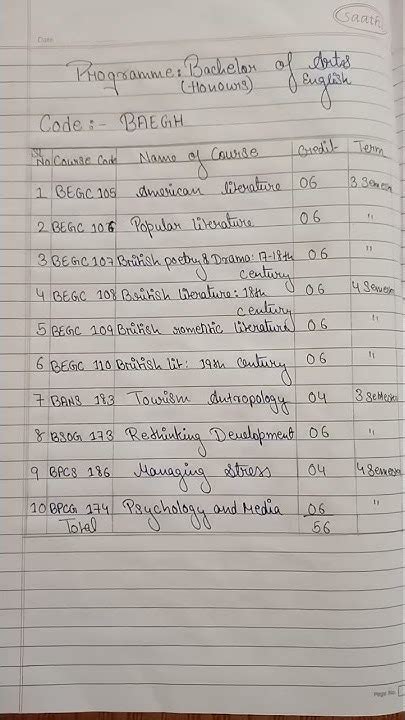 Saath
Date
Programme: Bachelor of Arts
(Honours) English
Code:- BAEGH
Sl. No Course Code Name of Course Credit Term
1 BEGC 105 American literature 06 3 Semester
2 BEGC 106 Popular literature 06 "
3 BEGC 107 British poetry & Drama: 17-18th 06 "
century
4 BEGC 108 British literature: 18th 06 4 Semester
century
5 BEGC 109 British romentic literature 06 "
6 BEGC 110 British lit: 19th century 06 "
7 BANS 183 Tourism Antropology 04 3 Semester
8 BSOG 173 Rethinking Development 06 "
9 BPCS 186 Managing stress 04 4 Semester
10 BPCG 174 Psychology and Media 06 "
Total 56
Page No.